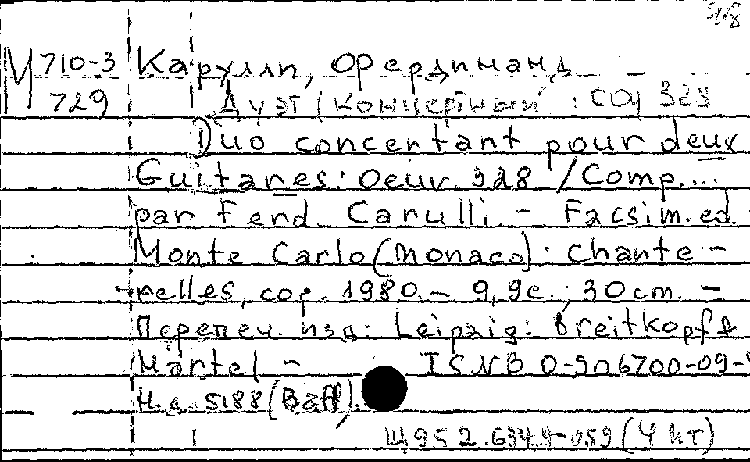 М 710-3 Карулли, Фердинанд
729 Дуэт (концертный: соч 328
Duo concertant pour deux
Guitares: Oeuv. 328 / Comp....
par Ferd. Carulli. - Facsim. ed -
Monte Carlo (Monaco): Chante-
relles, cop. 1980. - 9,9с.; 30 cm. -
Перепеч. изд: Leipzig: Breitkopf &
Härtel -
Н.д. 5188 (Bäff).
Щ952.634.4-059 (4 Нт)